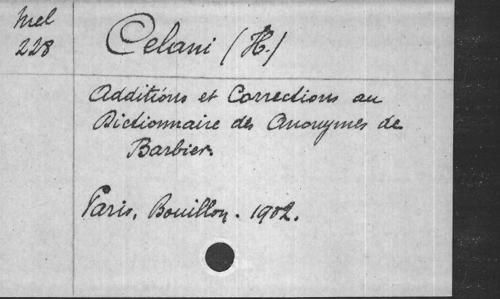 Mel
228
Celani (H.)
Additions et Corrections au
Dictionnaire des Anonymes de
Barbier.
Paris, Bouillon. 1902.